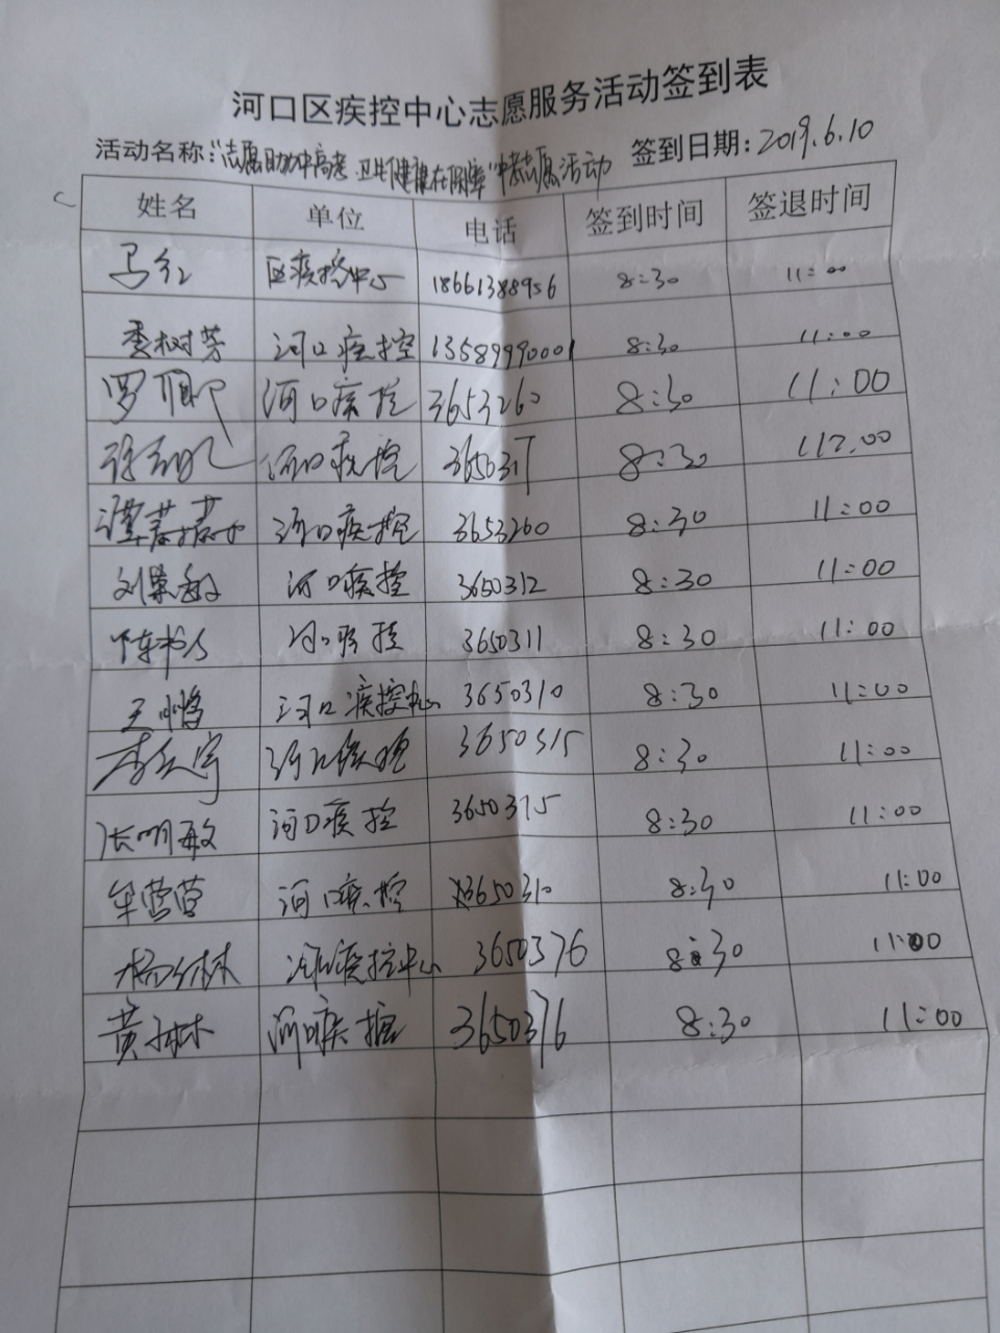 河口区疾控中心志愿服务活动签到表
活动名称：“志愿助力中高考 卫生健康在保障”中考志愿活动 签到日期：2019.6.10
姓名 单位 电话 签到时间 签退时间
马红 区疾控中心 18661388956 8:30 11:00
季树芳 河口疾控 13589990001 8:30 11:00
罗 河口疾控 3653260 8:30 11:00
徐 河口疾控 3650317 8:30 11:00
谭喜 河口疾控 3653260 8:30 11:00
刘景敏 河口疾控 3650312 8:30 11:00
陈 河口疾控 3650311 8:30 11:00
王鹏 河口疾控中心 3650310 8:30 11:00
李 宇 河口疾控 3650315 8:30 11:00
张明敏 河口疾控 3650315 8:30 11:00
牟营营 河口疾控 3650310 8:30 11:00
杨 林 河口疾控中心 3650376 8:30 11:00
黄 林 河口疾控 3650376 8:30 11:00